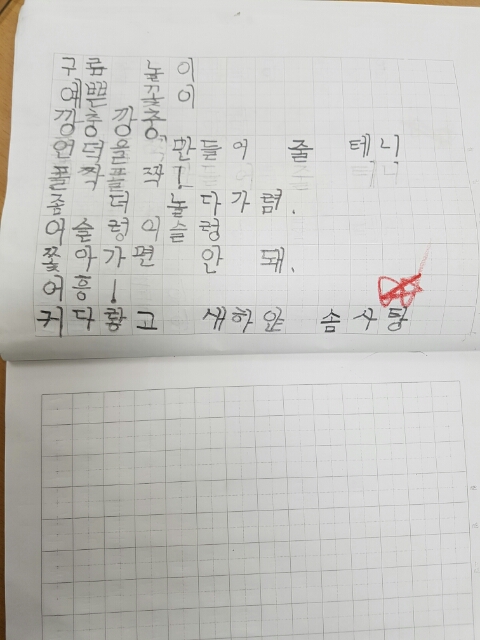 구름 놀이
예쁜 꽃이
깡충깡충
언덕을 만들어 줄 테니
폴짝폴짝!
좀 더 놀다가렴.
어슬렁어슬렁
쫓아가면 안 돼.
어흥!
커다랗고 새하얀 솜사탕